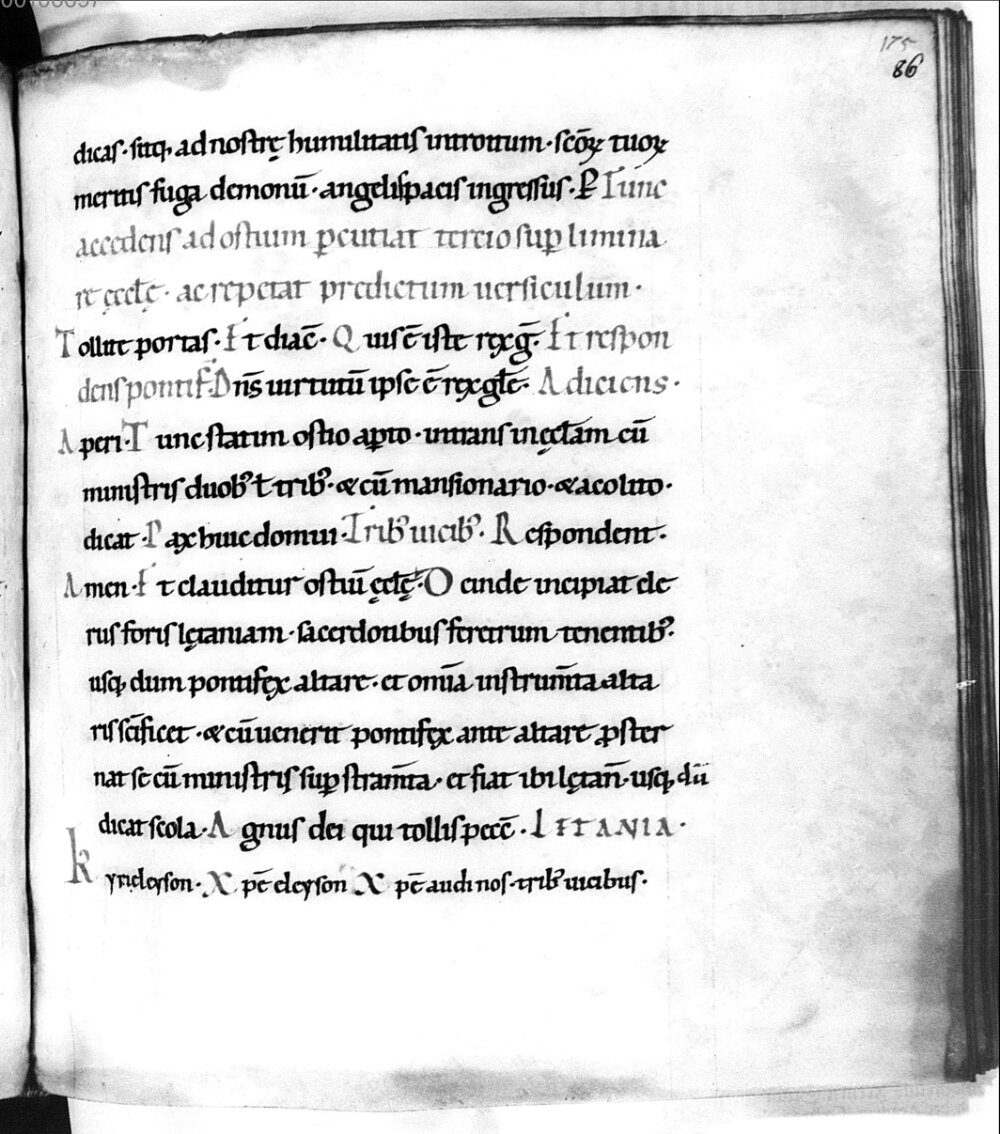 175
86
dicas · sitq; ad nostrę humilitatis introitum · scōꝝ tuoꝝ
meritis fuga demonū · angeli pacis ingressus · P̶ Tunc
accedens ad ostium ꝑcutiat tercio suꝑ limina
re ęcclę · ac repetat predictum uersiculum ·
Tollite portas · Et diac̄ · Quis ē iste rex gł̄ · Et respon
dens pontif̄ · Dn̄s uirtutū ipse ē rex głę · Adiciens ·
Aperi · Tunc statim ostio aꝑto · intrans in ęcclam cū
ministris duobꝰ ł tribꝰ · & cū mansionario · & acolito ·
dicat · Pax huic domui · Tribꝰ uicibꝰ · Respondent ·
Amen · Et clauditur ostiū ęcclę · Deinde incipiat cle
rus foris lętaniam · sacerdotibus feretrum tenentibꝰ ·
usq; dum pontifex altare · et omīa instrum̄ta alta
ris scīficet · & cū uenerit pontifex ante altare ꝓster
nat se cū ministris suꝑ stram̄ta · et fiat ibi lętan̄ · usq; dū
dicat scola · Agnus dei qui tollis pecc̄ · LETANIA ·
kyrieleyson · Xpē eleyson Xpē audi nos · tribꝰ uicibus ·